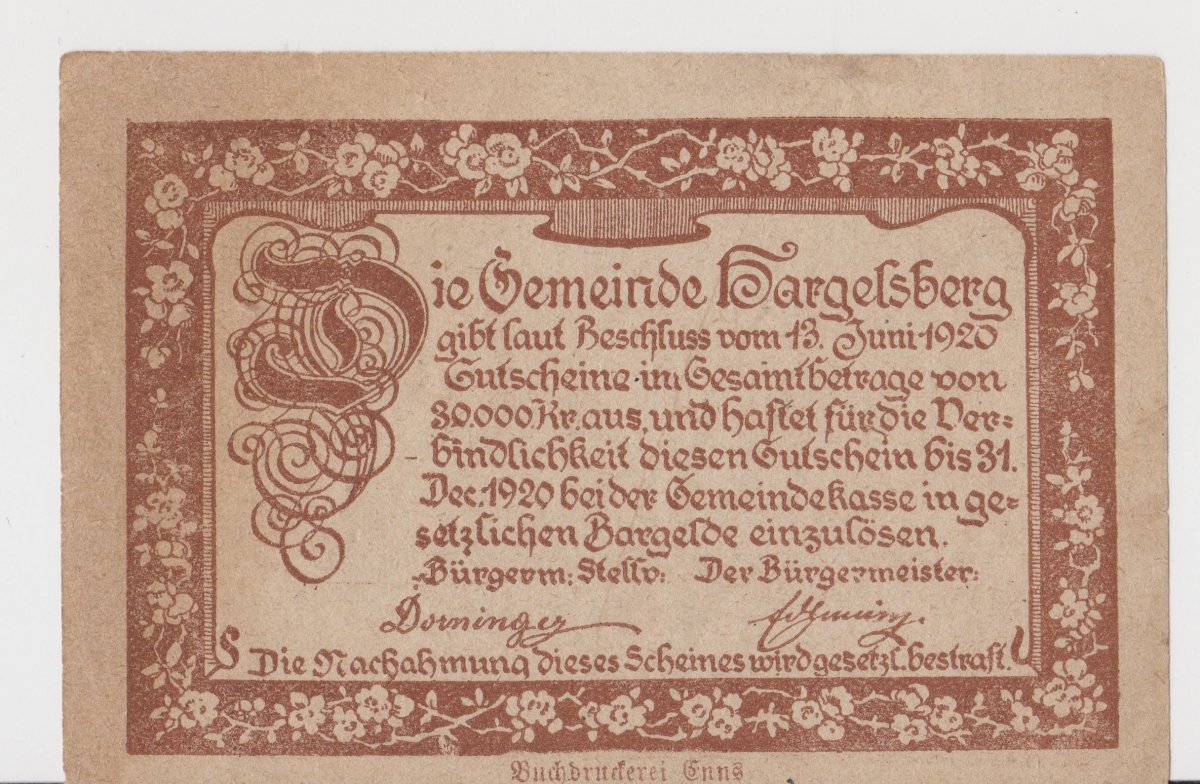 Die Gemeinde Hargelsberg
gibt laut Beschluss vom 13. Juni 1920
Gutscheine im Gesamtbetrage von
30.000 Kr. aus, und haftet für die Ver=
bindlichkeit diesen Gutschein bis 31.
Dec. 1920 bei der Gemeindekasse in ge=
setzlichen Bargelde einzulösen.
Bürgerm: Stellv: Der Bürgermeister:
Dorninger
Die Nachahmung dieses Scheines wird gesetzl. bestraft.
Buchdruckerei Enns